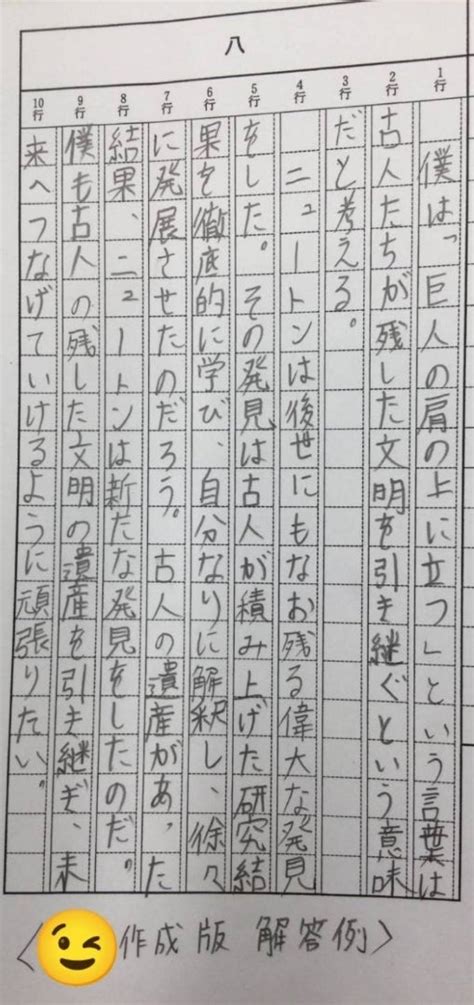 八
1行
2行
3行
4行
5行
6行
7行
8行
9行
10行
僕は、「巨人の肩の上に立つ」という言葉は
古人たちが残した文明を引き継ぐという意味
だと考える。
ニュートンは後世にもなお残る偉大な発見
をした。その発見は古人が積み上げた研究結
果を徹底的に学び、自分なりに解釈し、徐々
に発展させたのだろう。古人の遺産があった
結果、ニュートンは新たな発見をしたのだ。
僕も古人の残した文明の遺産を引き継ぎ、未
来へつなげていけるように頑張りたい。
〈😉作成版 解答例〉